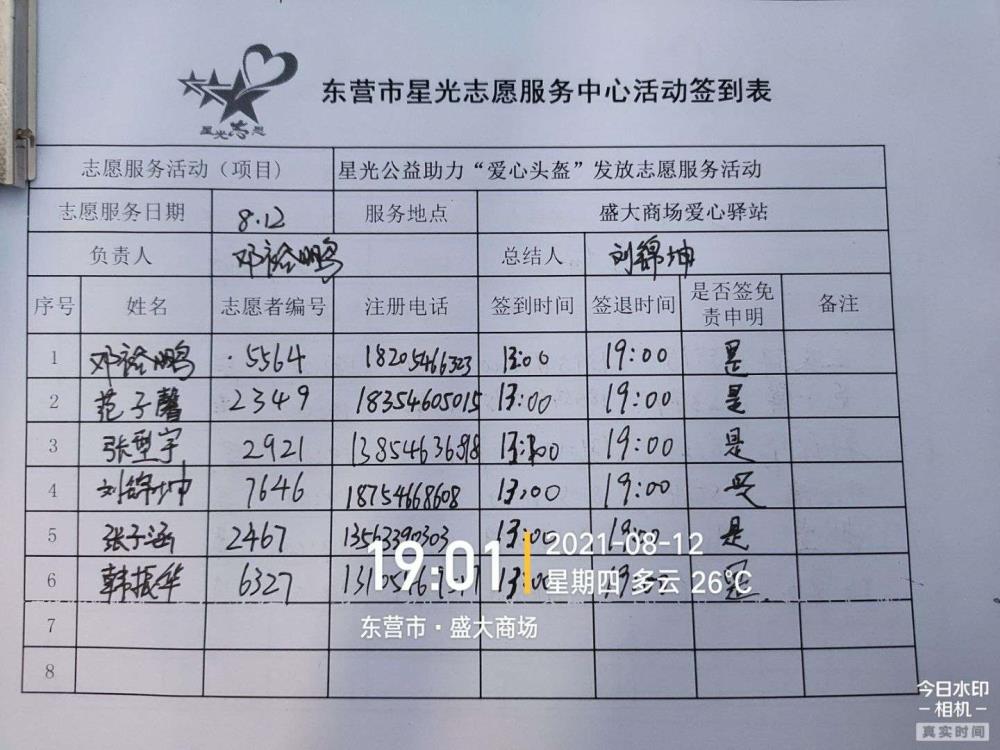 星光志愿
东营市星光志愿服务中心活动签到表
志愿服务活动（项目） 星光公益助力“爱心头盔”发放志愿服务活动
志愿服务日期 8.12 服务地点 盛大商场爱心驿站
负责人 邓裕鹏 总结人 刘锦坤
序号 姓名 志愿者编号 注册电话 签到时间 签退时间 是否签免责申明 备注
1 邓裕鹏 5564 18205466323 13:00 19:00 是
2 范子馨 2349 18354605015 13:00 19:00 是
3 张型宇 2921 13:00 19:00 是
4 刘锦坤 7646 18754668608 13:00 19:00 是
5 张子涵 2467 13563390303 13:00 19:00 是
6 韩振华 6327 13:00 是
7
8
19:01 2021-08-12
星期四 多云 26℃
东营市·盛大商场
今日水印
-相机-
真实时间